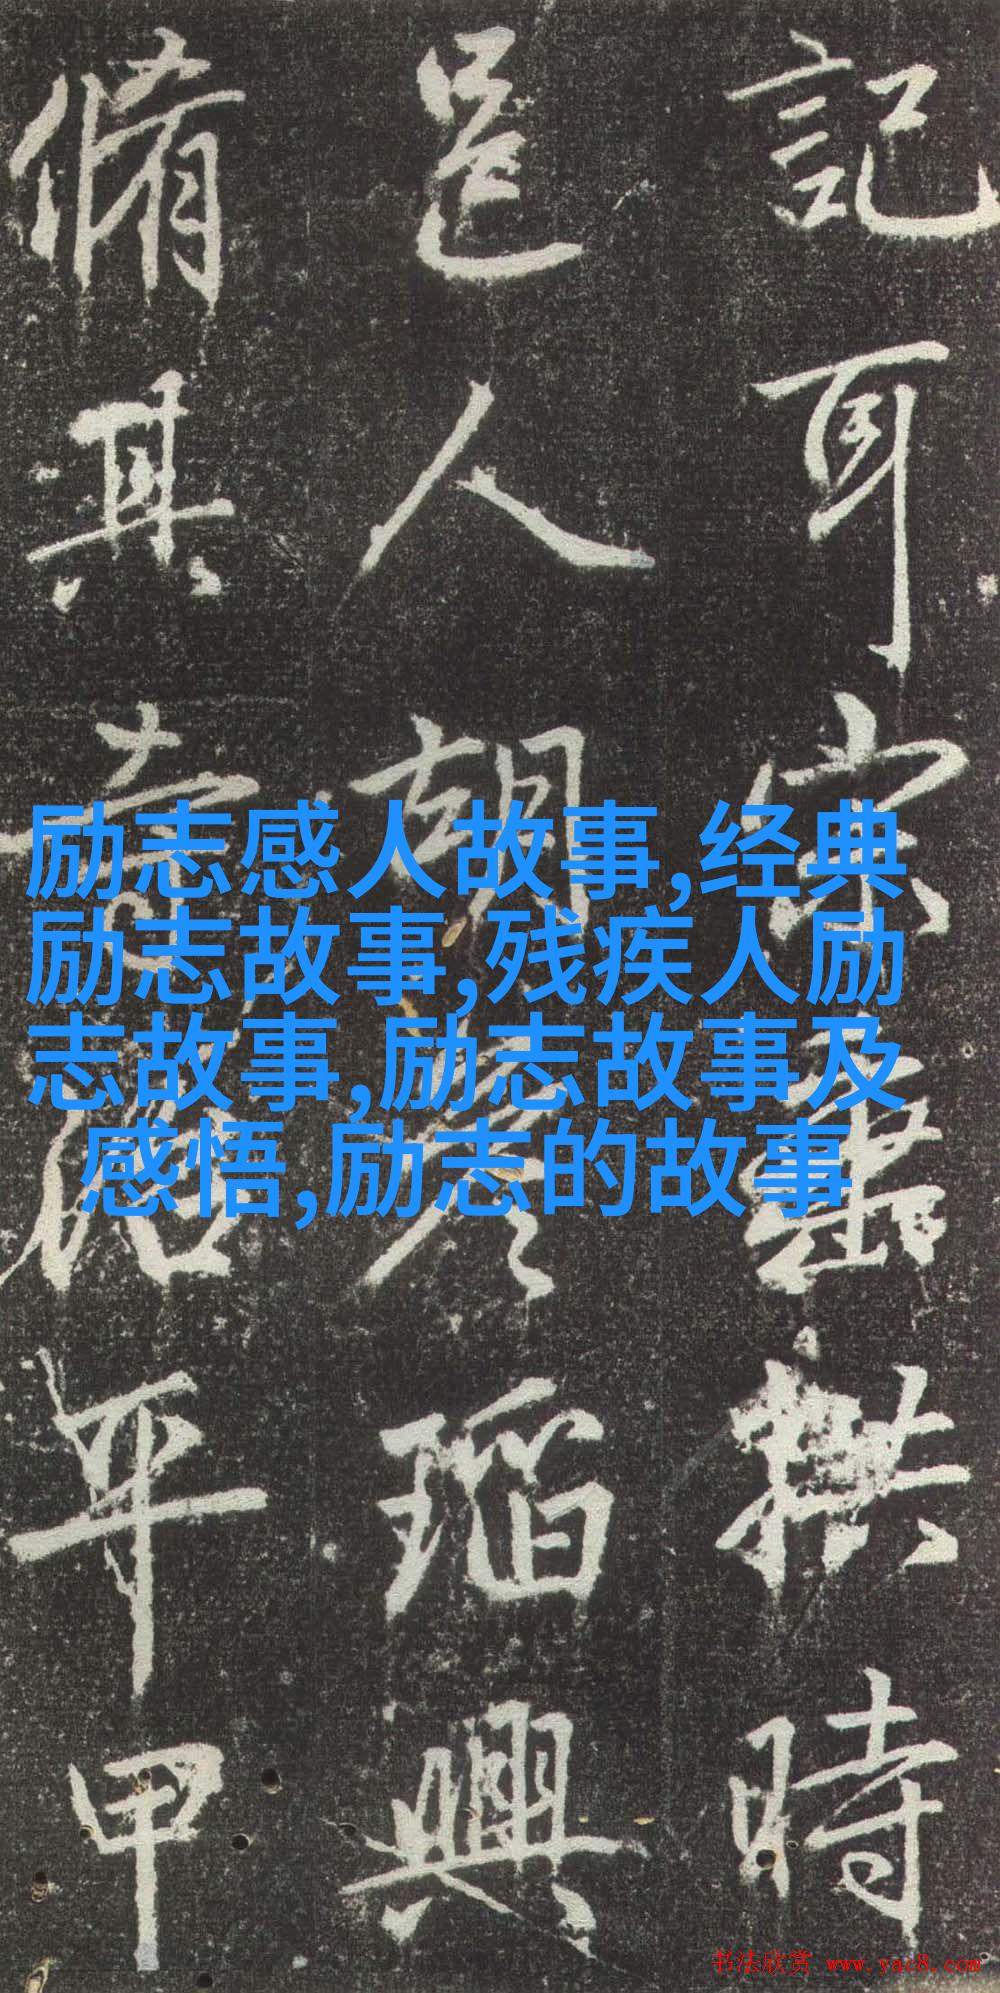 記耳宗垂拱時
邑人胡彦瑫興
脩其平甲
励志感人故事,经典
励志故事,残疾人励
志故事,励志故事及
感悟,励志的故事
书法欣赏 www.yac8.com